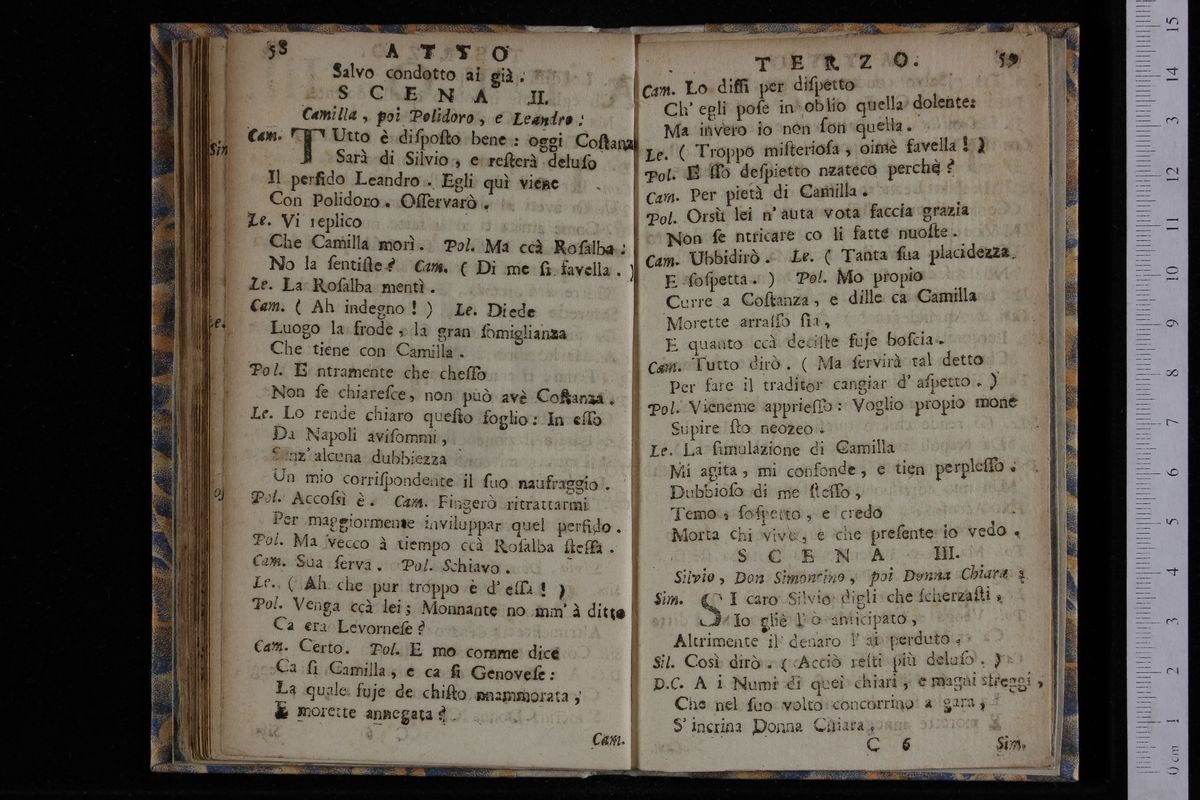 58 ATTO
Salvo condotto ai già.
SCENA II.
Camilla, poi Polidoro, e Leandro:
Cam. TUtto è diſpoſto bene: oggi Coſtanza
Sarà di Silvio, e reſterà deluſo
Il perfido Leandro. Egli quì viene
Con Polidoro. Oſſervarò.
Le. Vi replico
Che Camilla morì. Pol. Ma ccà Roſalba:
No la ſentiſte? Cam. ( Di me ſi favella. )
Le. La Roſalba mentì.
Cam. ( Ah indegno! ) Le. Diede
Luogo la frode, la gran ſomiglianza
Che tiene con Camilla.
Pol. E ntramente che cheſſo
Non ſe chiareſce, non può avè Coſtanza.
Le. Lo rende chiaro queſto foglio: In eſſo
Da Napoli aviſommi,
Senz'alcuna dubbiezza
Un mio corriſpondente il ſuo naufraggio.
Pol. Accoſsì è. Cam. Fingerò ritrattarmi
Per maggiormente inviluppar quel perfido.
Pol. Ma vecco à tiempo ccà Roſalba ſteſſa.
Cam. Sua ſerva. Pol. Schiavo.
Le. ( Ah che pur troppo è d'eſſa! )
Pol. Venga ccà lei; Monnante no mm'à ditto
Ca era Levorneſe?
Cam. Certo. Pol. E mo comme dice
Ca ſi Camilla, e ca ſi Genoveſe:
La quale fuje de chiſto nnammorata,
E morette annegata?
Cam.
TERZO. 59
Cam. Lo diſſi per diſpetto
Ch'egli poſe in oblio quella dolente:
Ma invero io non ſon quella.
Le. ( Troppo miſterioſa, oimè favella! )
Pol. E ſſo deſpietto nzateco perchè?
Cam. Per pietà di Camilla.
Pol. Orsù lei n'auta vota faccia grazia
Non ſe ntricare co li fatte nuoſte.
Cam. Ubbidirò. Le. ( Tanta ſua placidezza
E ſoſpetta. ) Pol. Mo propio
Curre a Coſtanza, e dille ca Camilla
Morette arraſſo ſia,
E quanto ccà deciſte fuje boſcia.
Cam. Tutto dirò. ( Ma ſervirà tal detto
Per fare il traditor cangiar d'aſpetto. )
Pol. Vieneme apprieſſo: Voglio propio mone
Supire ſto neozeo.
Le. La ſimulazione di Camilla
Mi agita, mi confonde, e tien perpleſſo:
Dubbioſo di me ſteſſo,
Temo, ſoſpetto, e credo
Morta chi vive, e che preſente io vedo.
SCENA III.
Silvio, Don Simoncino, poi Donna Chiara;
Sim. SI caro Silvio digli che ſcherzaſti,
Io gliè l'ò anticipato,
Altrimente il denaro l'ai perduto.
Sil. Così dirò. ( Acciò reſti più deluſo. )
D.C. A i Numi di quei chiari, e magni streggi,
Che nel ſuo volto concorrino a gara,
S'incrina Donna Chiara.
C 6 Sim.